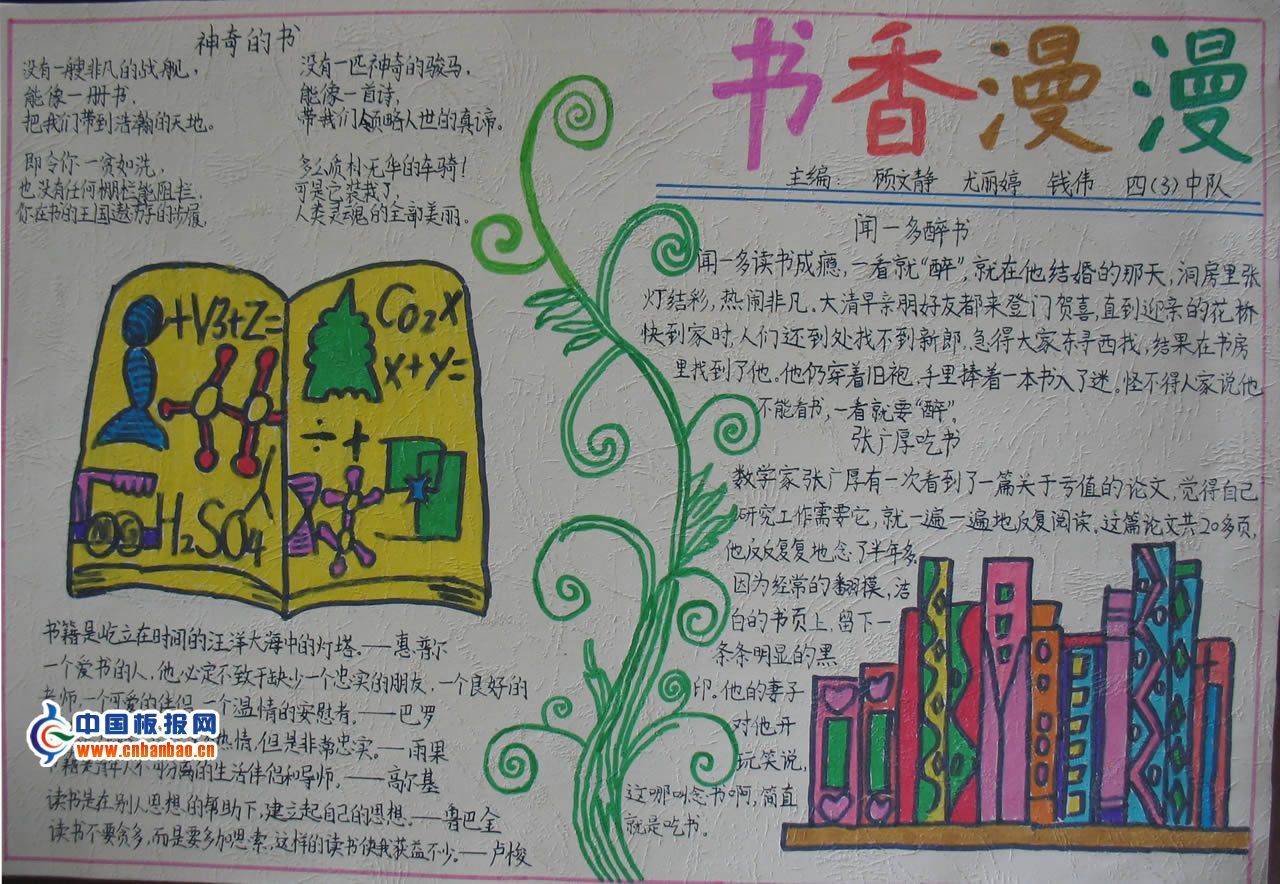 书香漫漫
主编 顾文静 尤丽婷 钱伟 四(3)中队
神奇的书
没有一艘非凡的战舰，
能像一册书，
把我们带到浩瀚的天地。
没有一匹神奇的骏马，
能像一首诗，
带我们领略人世的真谛。
即令你一贫如洗，
也没有任何栅栏能阻拦，
你在书的王国遨游的步履。
多么质朴无华的车骑！
可是它装载了，
人类灵魂的全部美丽。
+V3+Z=
CO2X
X+y=
÷+
MG
H2SO4
书籍是屹立在时间的汪洋大海中的灯塔。——惠普尔
一个爱书的人，他必定不致于缺少一个忠实的朋友，一个良好的
老师，一个可爱的伴侣，一个温情的安慰者。——巴罗
热情，但是非常忠实。——雨果
不可分离的生活伴侣和导师。——高尔基
读书是在别人思想的帮助下，建立起自己的思想。——鲁巴金
读书不要贪多，而是要多加思索，这样的读书使我获益不少。——卢梭
中国板报网
www.cnbanbao.cn
闻一多醉书
闻一多读书成瘾，一看就“醉”，就在他结婚的那天，洞房里张
灯结彩，热闹非凡。大清早亲朋好友都来登门贺喜，直到迎亲的花桥
快到家时，人们还到处找不到新郎。急得大家东寻西找，结果在书房
里找到了他。他仍穿着旧袍，手里捧着一本书入了迷。怪不得人家说他
不能看书，一看就要“醉”。
张广厚吃书
数学家张广厚有一次看到了一篇关于亏值的论文，觉得自己
研究工作需要它，就一遍一遍地反复阅读。这篇论文共20多页，
他反反复复地念了半年多。
因为经常的翻摸，洁
白的书页上，留下一
条条明显的黑
印。他的妻子
对他开
玩笑说，
这哪叫念书啊，简直
就是吃书。